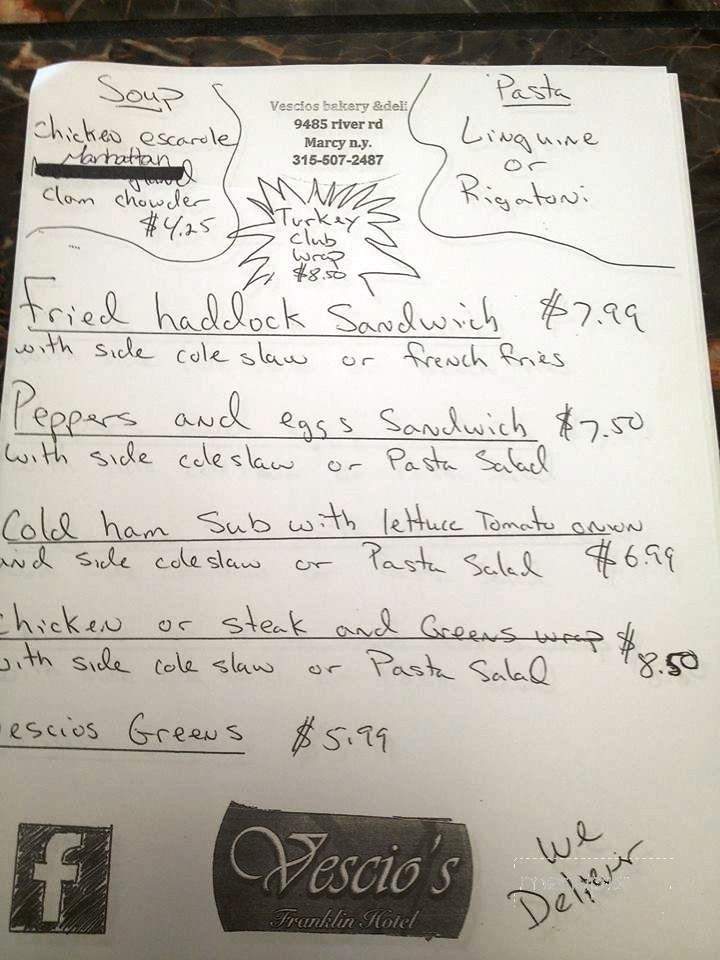 Soup
Chicken escarole
Manhattan
Clam chowder
$4.25
Vescios bakery &deli
9485 river rd
Marcy n.y.
315-507-2487
Turkey
Club
Wrap
$8.50
Pasta
Linguine
or
Rigatoni
Fried haddock Sandwich $7.99
with side cole slaw or french fries
Peppers and eggs Sandwich $7.50
with side coleslaw or Pasta Salad
Cold ham Sub with lettuce Tomato onion
and side coleslaw or Pasta Salad $6.99
Chicken or steak and Greens wrap $8.50
with side cole slaw or Pasta Salad
escios Greens $5.99
f
Vescio's
Franklin Hotel
We
Deliver